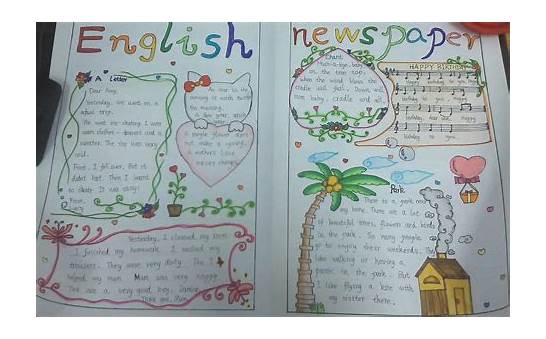 English newspaper
A Letter
Dear Amy,
Yesterday, we went on a
school trip.
We went ice-skating. I wore
warm clothes - trousers and a
sweater. The ice was very
cold.
First, I fell over. But it
didn't hurt. Then I learned
to skate. It was easy!
From,
Lucy
As one is the
A single flower does
not make a spring.
A mother's love
never changes.
Yesterday, I cleaned my room.
I finished my homework. I washed my
trousers. They were very dirty. The I
helped my mum. Mum was very happy.
You are a very good boy,
Thank you, Mum.
Chant
Hush-a-bye, baby
on the tree top,
when the wind blows the
cradle will fall. Down will
come baby, cradle and all.
HAPPY BIRTHDAY
Happy birthday to you, Happy
birthday to you, Happy
birthday, dear Happy
birthday to you.
Park
There is a park near
my home. There are a lot
of beautiful trees, flowers and birds
in the park. So many people
go to enjoy their weekends. They
like walking or having a
picnic in the park. But
I like flying a kite with
my sister there.